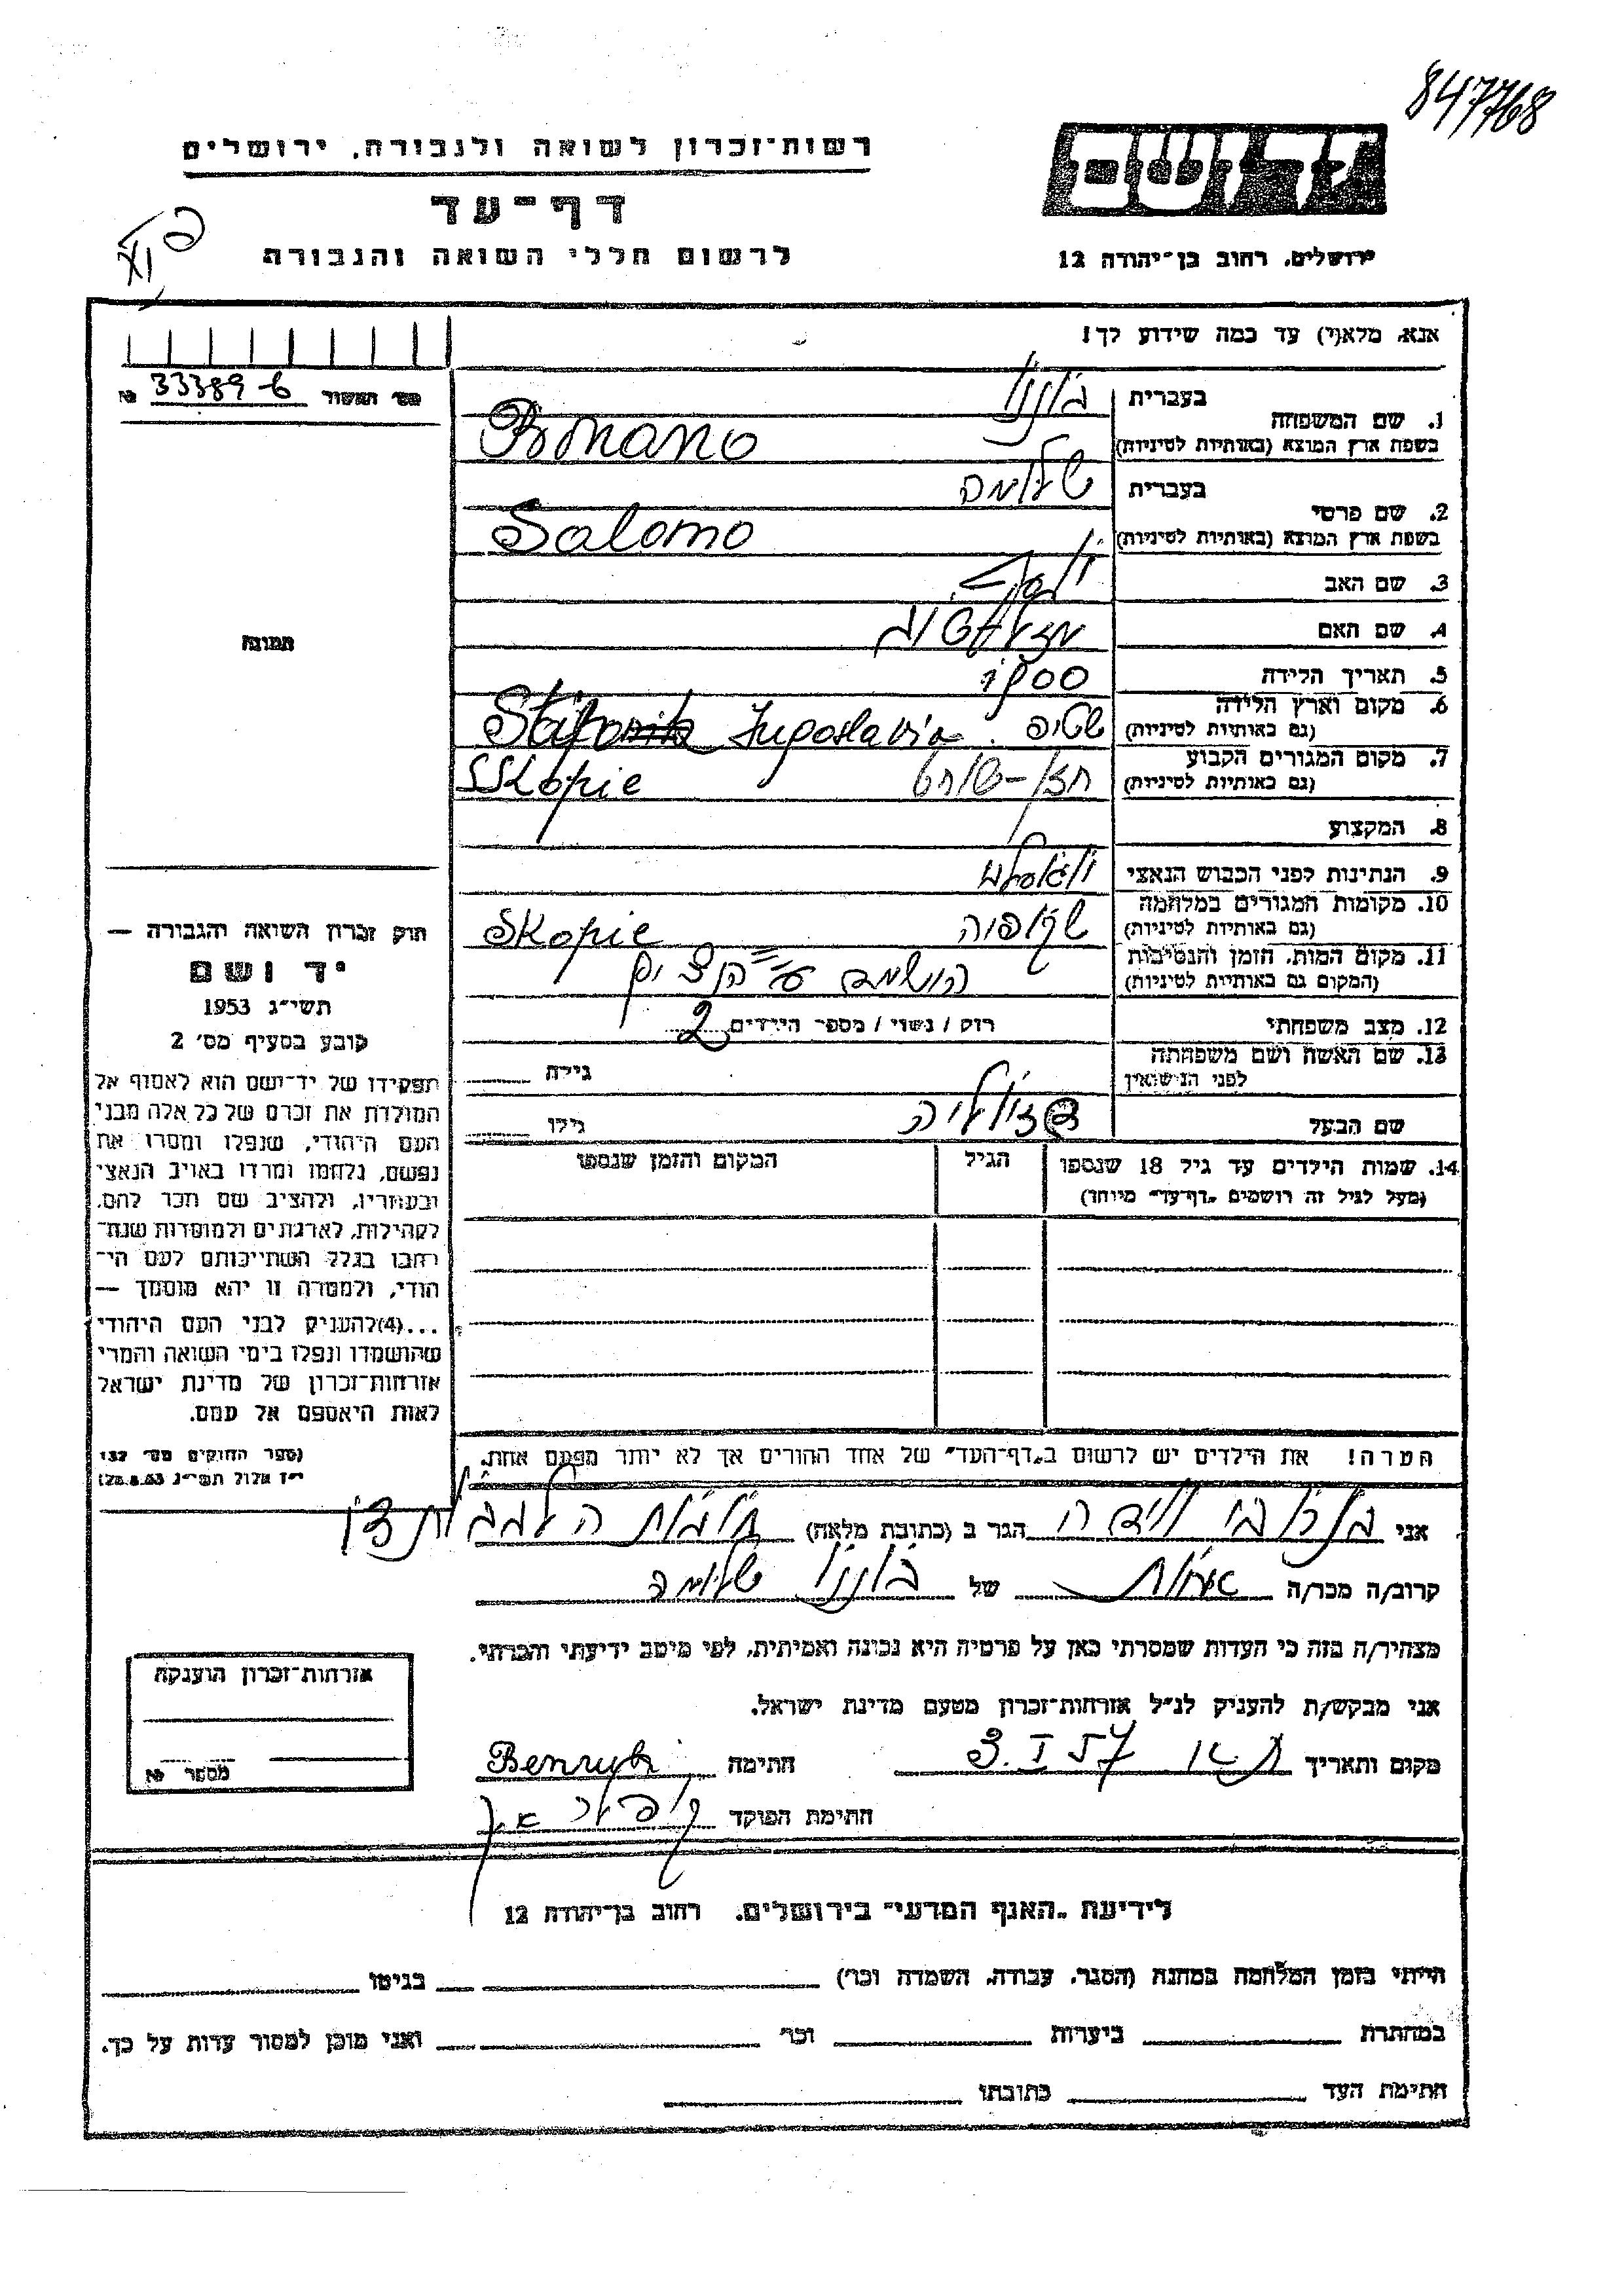 847768
רשות־זכרון לשואה ולגבורה, ירושלים
דף־עד
לרשום חללי השואה והגבורה
יד ושם
ירושלים, רחוב בן־יהודה 12
אנא, מלא(י) עד כמה שידוע לך!
מס' תמשור № 33389-6
1. שם המשפחה
בעברית
בשפת ארץ המוצא (באותיות לטיניות) Bonano
2. שם פרטי
בעברית שלמה
בשפת ארץ המוצא (באותיות לטיניות) Salomo
3. שם האב
4. שם האם
5. תאריך הלידה 1900
6. מקום וארץ הלידה
(גם באותיות לטיניות) שטיפ. Jugoslavia
7. מקום המגורים הקבוע
(גם באותיות לטיניות) Skopie
8. המקצוע
9. הנתינות לפני הכבוש הנאצי
10. מקומות המגורים במלחמה
(גם באותיות לטיניות) סקופיה Skopie
11. מקום המות, הזמן והנסיבות
(המקום גם באותיות לטיניות) הושמד ע"י הנצים
12. מצב משפחתי רוק / נשוי / מספר הילדים 2
13. שם האשה ושם משפחתה
לפני הנישואין
גילה
שם הבעל
גילו
14. שמות הילדים עד גיל 18 שנספו
(מעל לגיל זה רושמים „דף־עד" מיוחד)
הגיל
המקום והזמן שנספו
תמונה
חוק זכרון השואה והגבורה —
יד ושם
תשי״ג 1953
קובע בסעיף מס׳ 2
תפקידו של יד־ושם הוא לאסוף אל
המולדת את זכרם של כל אלה מבני
העם היהודי, שנפלו ומסרו את
נפשם, נלחמו ומרדו באויב הנאצי
ובעוזריו, ולהציב שם וזכר להם,
לקהילות, לארגונים ולמוסדות שנח־
רבו בגלל השתייכותם לעם הי־
הודי, ולמטרה זו יהא מוסמך —
...(4)להעניק לבני העם היהודי
שהושמדו ונפלו בימי השואה והמרי
אזרחות־זכרון של מדינת ישראל
לאות היאספם אל עמם.
(ספר החוקים מס׳ 132
י״ז אלול תשי״ג 28.8.53)
הערה! את הילדים יש לרשום ב„דף־העד" של אחד ההורים אך לא יותר מפעם אחת.
אני הגר ב (כתובת מלאה)
קרוב/ה מכר/ה אחות של בוננו שלומה
מצהיר/ה בזה כי העדות שמסרתי כאן על פרטיה היא נכונה ואמיתית, לפי מיטב ידיעתי והכרתי.
אני מבקש/ת להעניק לנ״ל אזרחות־זכרון מטעם מדינת ישראל.
מקום ותאריך 3.I 57 חתימה
חתימת הפוקד
אזרחות־זכרון הוענקה
מספר №
לידיעת „האגף המדעי" בירושלים, רחוב בן־יהודה 12
הייתי בזמן המלחמה במחנה (הסגר, עבודה, השמדה וכר׳) בגיטו
במחתרת ביערות וכר׳ ואני מוכן למסור עדות על כך.
חתימת העד כתובתו